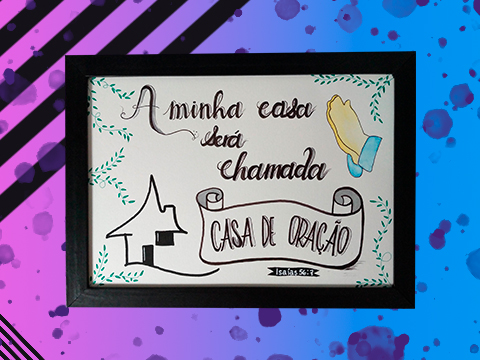 A minha casa
será
chamada
CASA DE ORAÇÃO
Isaías 56:7